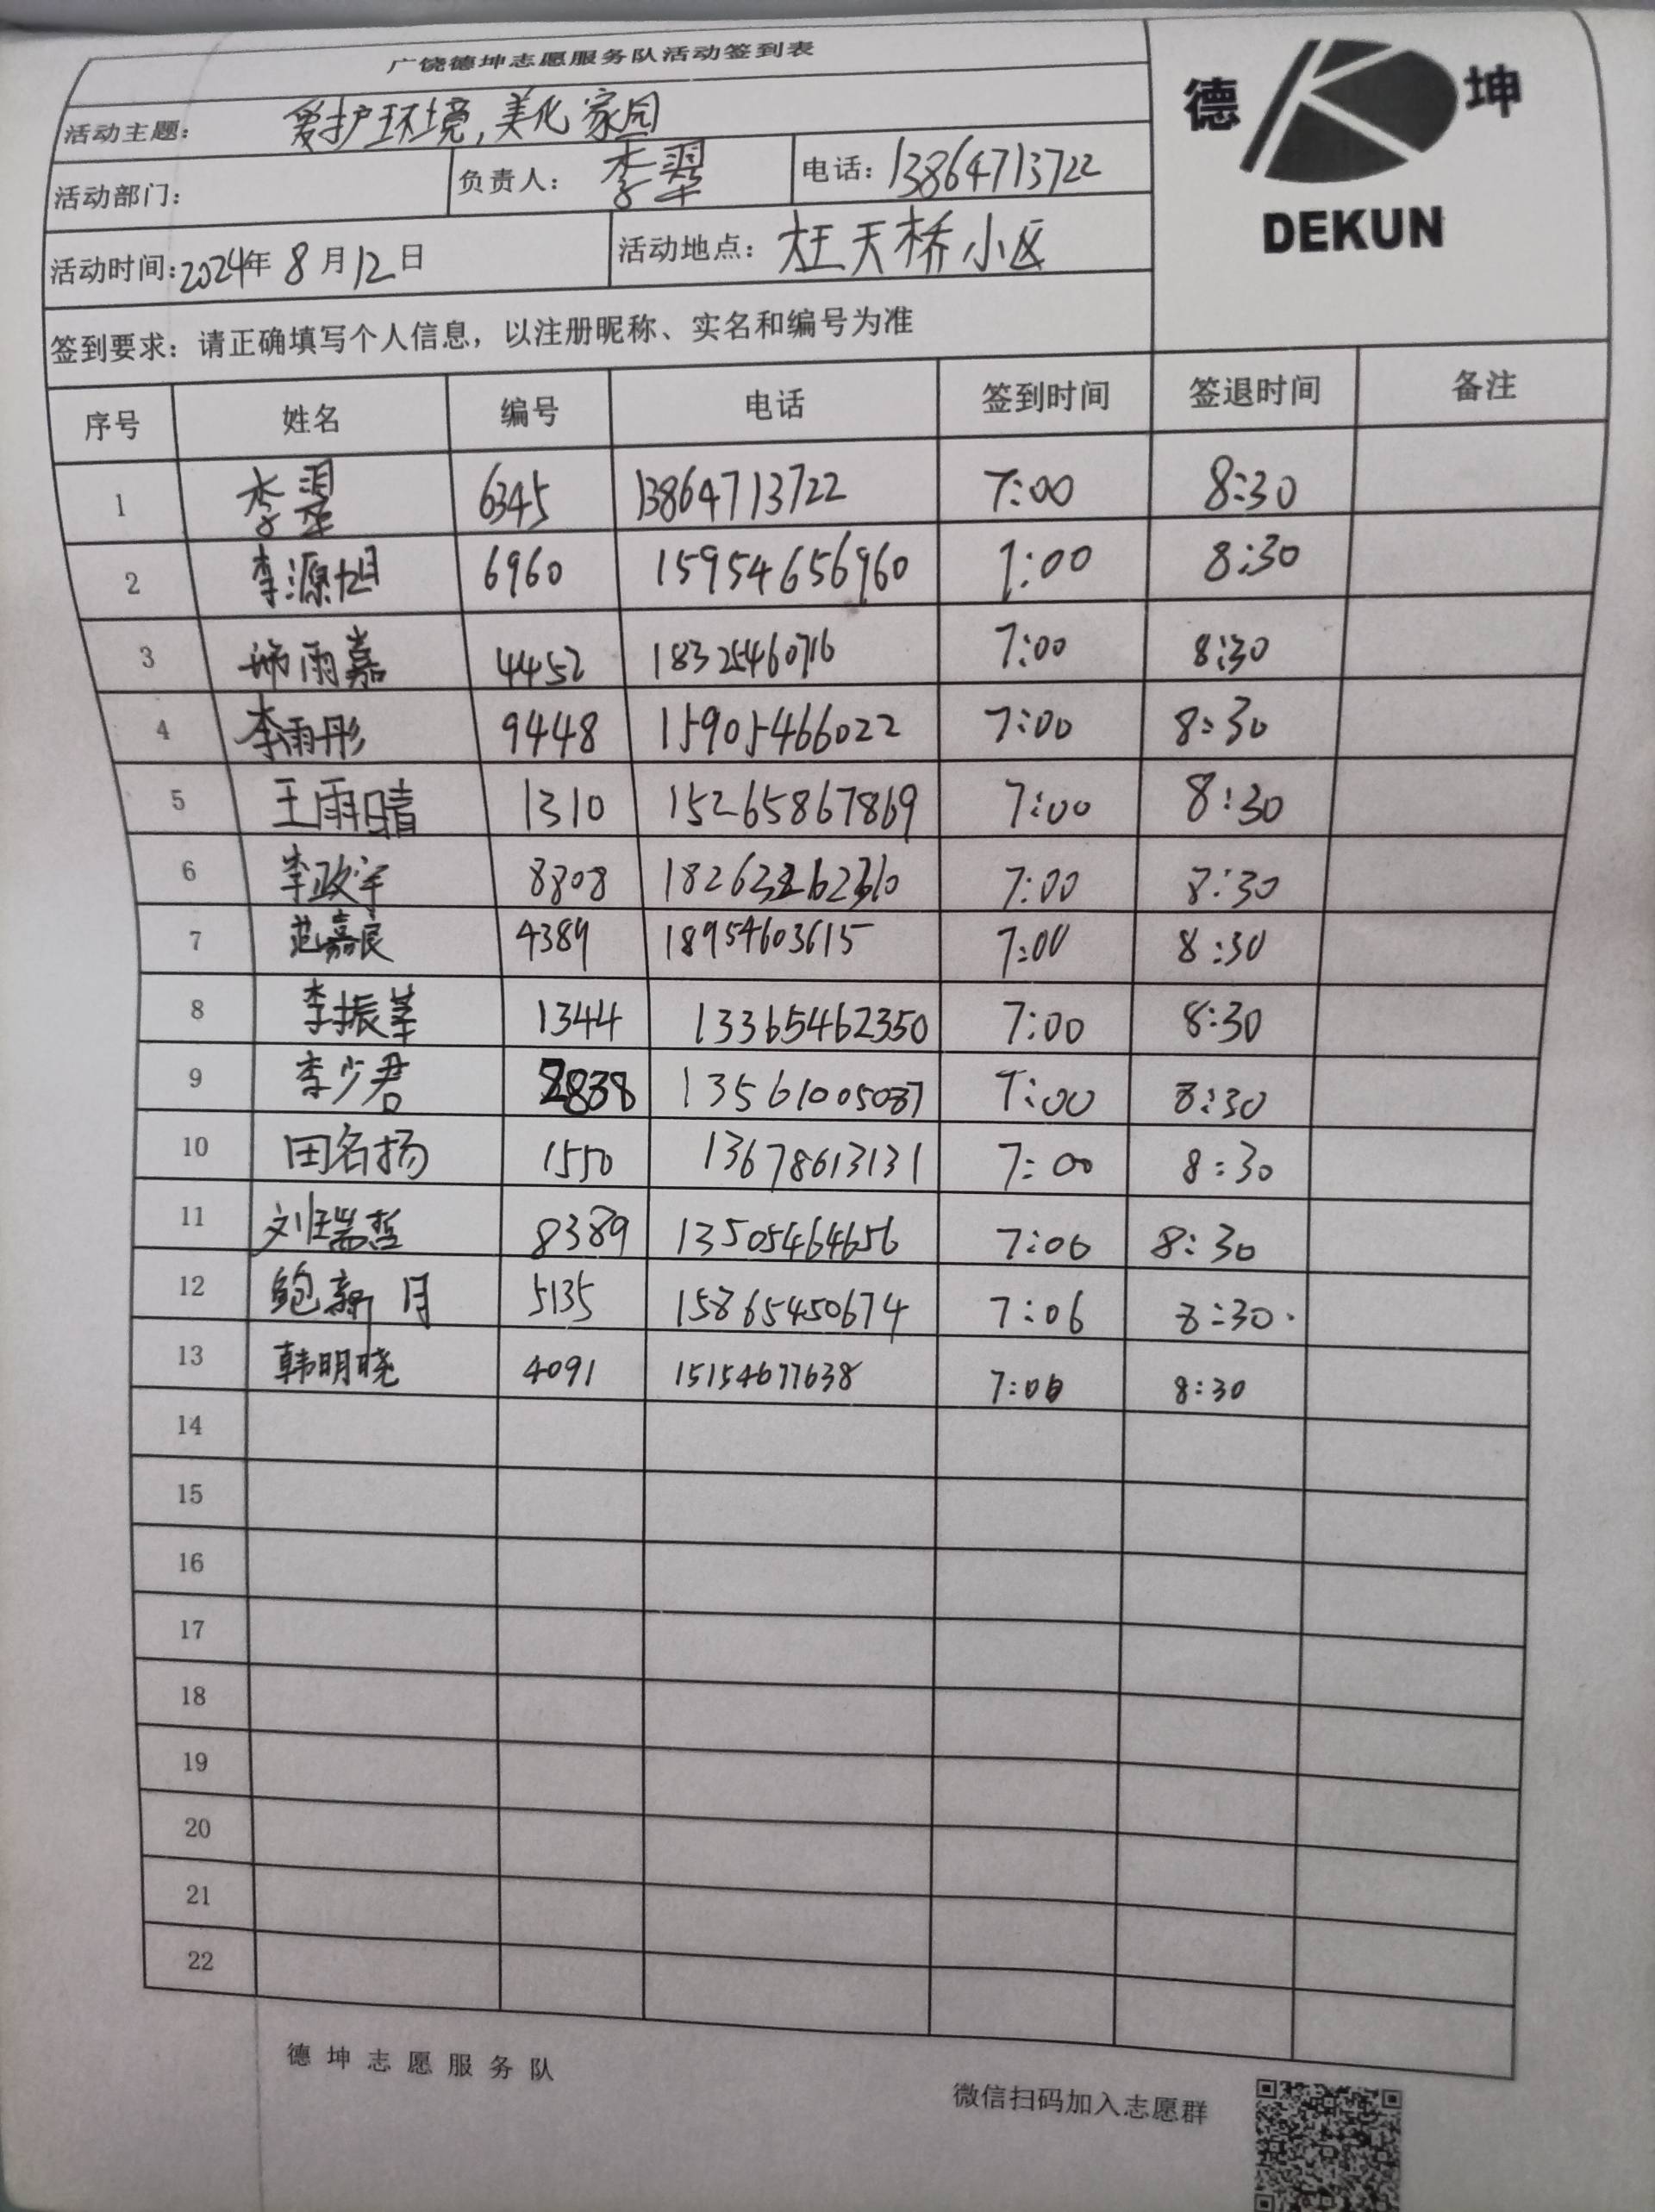 广饶德坤志愿服务队活动签到表
德 坤
DEKUN
活动主题: 爱护环境,美化家园
活动部门: 负责人: 李翠 电话: 13864713722
活动时间:2024年 8 月 12 日 活动地点: 天桥小区
签到要求: 请正确填写个人信息, 以注册昵称、实名和编号为准
序号 姓名 编号 电话 签到时间 签退时间 备注
1 李翠 6345 13864713722 7:00 8:30
2 李源旭 6960 15954656960 7:00 8:30
3 雨嘉 4452 18325460716 7:00 8:30
4 李雨彤 9448 15905466022 7:00 8:30
5 王雨晴 1310 15265867869 7:00 8:30
6 李政宇 8808 7:00 8:30
7 范嘉良 4389 18954603615 7:00 8:30
8 李振 1344 13365462350 7:00 8:30
9 李少君 2838 13561005087 7:00 8:30
10 田名扬 1550 13678613131 7:00 8:30
11 刘瑞哲 8389 13505464656 7:06 8:30
12 鲍新月 5135 15865450674 7:06 8:30
13 韩明晓 4091 15154677638 7:06 8:30
14
15
16
17
18
19
20
21
22
德坤志愿服务队
微信扫码加入志愿群